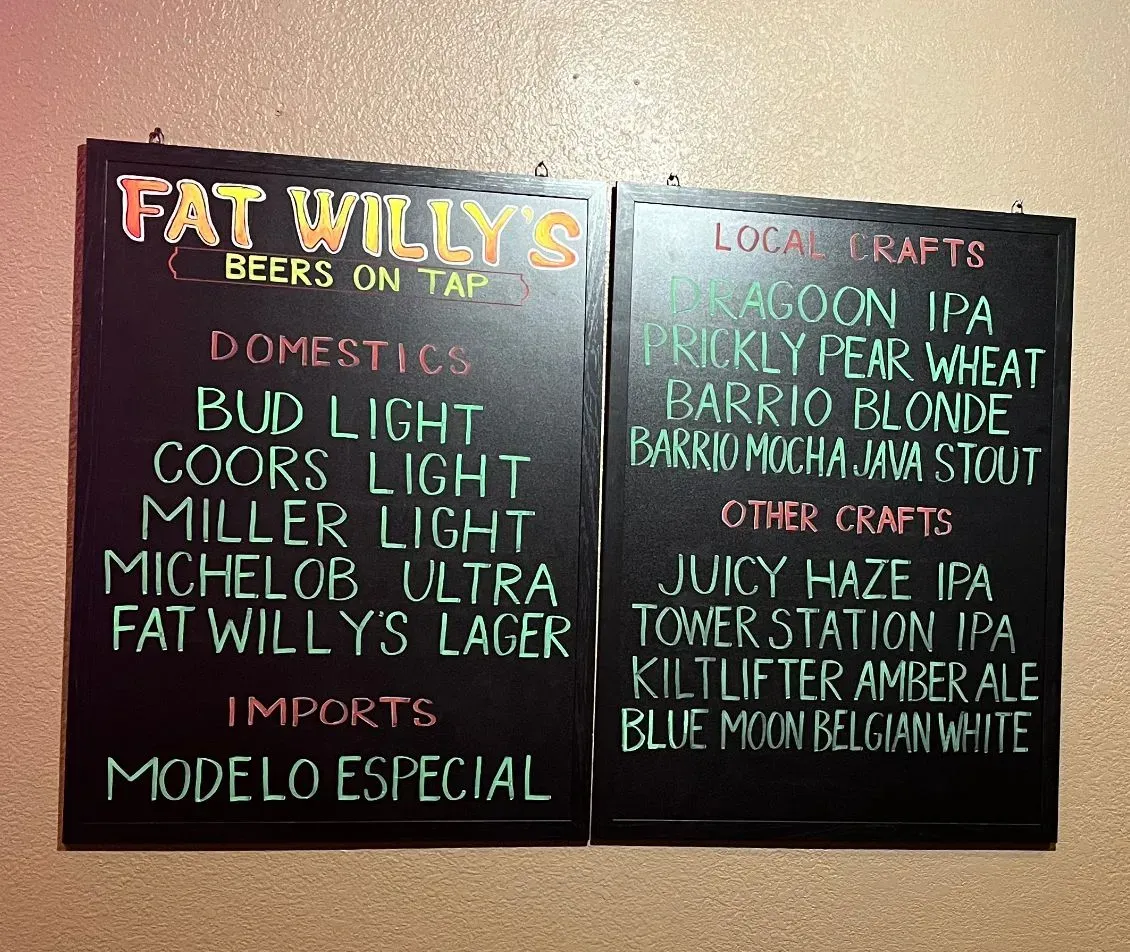 FAT WILLY'S
BEERS ON TAP
DOMESTICS
BUD LIGHT
COORS LIGHT
MILLER LIGHT
MICHELOB ULTRA
FAT WILLY'S LAGER
IMPORTS
MODELO ESPECIAL
LOCAL CRAFTS
DRAGOON IPA
PRICKLY PEAR WHEAT
BARRIO BLONDE
BARRIO MOCHA JAVA STOUT
OTHER CRAFTS
JUICY HAZE IPA
TOWER STATION IPA
KILTLIFTER AMBER ALE
BLUE MOON BELGIAN WHITE